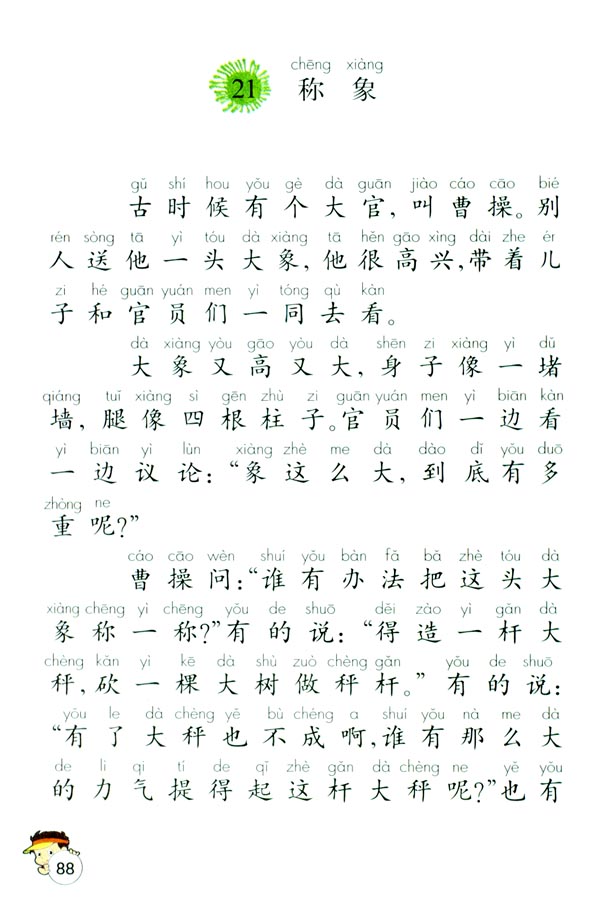 chēng xiàng
21 称 象
gǔ shí hou yǒu gè dà guān jiào cáo cāo bié
古时候有个大官,叫曹操。别
rén sòng tā yì tóu dà xiàng tā hěn gāo xìng dài zhe ér
人送他一头大象,他很高兴,带着儿
zi hé guān yuán men yì tóng qù kàn
子和官员们一同去看。
dà xiàng yòu gāo yòu dà shēn zi xiàng yì dǔ
大象又高又大,身子像一堵
qiáng tuǐ xiàng sì gēn zhù zi guān yuán men yì biān kàn
墙,腿像四根柱子。官员们一边看
yì biān yì lùn xiàng zhè me dà dào dǐ yǒu duō
一边议论:“象这么大,到底有多
zhòng ne
重呢?”
cáo cāo wèn shuí yǒu bàn fǎ bǎ zhè tóu dà
曹操问:“谁有办法把这头大
xiàng chēng yì chēng yǒu de shuō děi zào yì gǎn dà
象称一称?”有的说:“得造一杆大
chèng kǎn yì kē dà shù zuò chèng gǎn yǒu de shuō
秤,砍一棵大树做秤杆。”有的说:
yǒu le dà chèng yě bù chéng a shuí yǒu nà me dà
“有了大秤也不成啊,谁有那么大
de lì qi tí de qǐ zhè gǎn dà chèng ne yě yǒu
的力气提得起这杆大秤呢?”也有
88